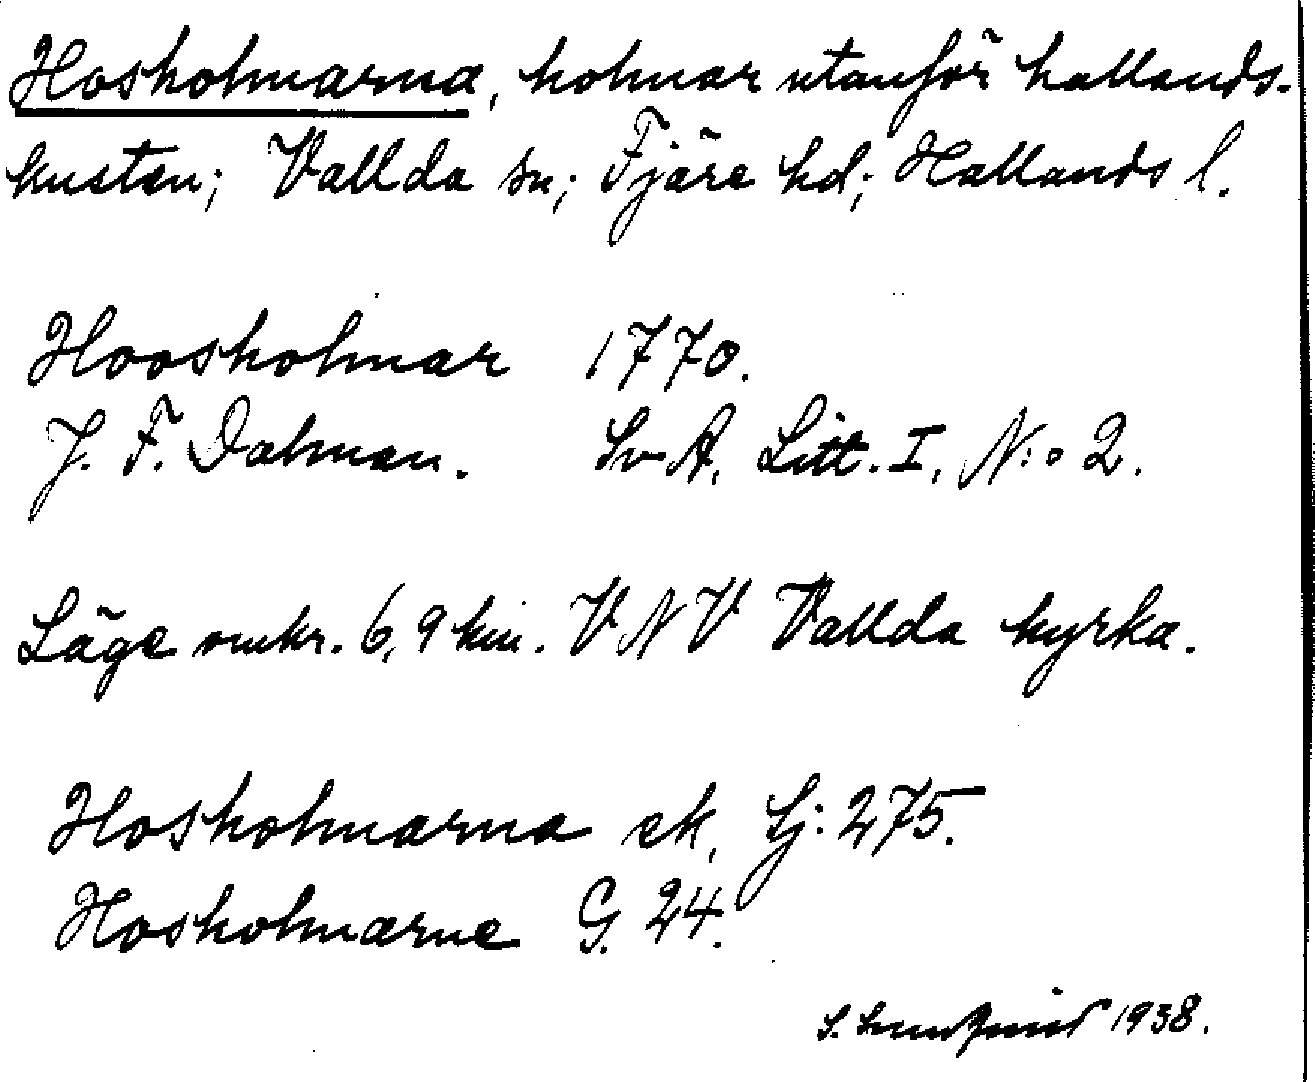 Hosholmarna, holmar utanför hallands-
kusten; Vallda sn; Fjäre hd; Hallands l.
Hoosholmar 1770.
J. F. Dalman. SvA, Litt. I, N:o 2.
Läge omkr. 6,9 km. VNV Vallda kyrka.
Hosholmarna ek, Sj: 275.
Hosholmarne G. 24.
S. Lundquist 1938.